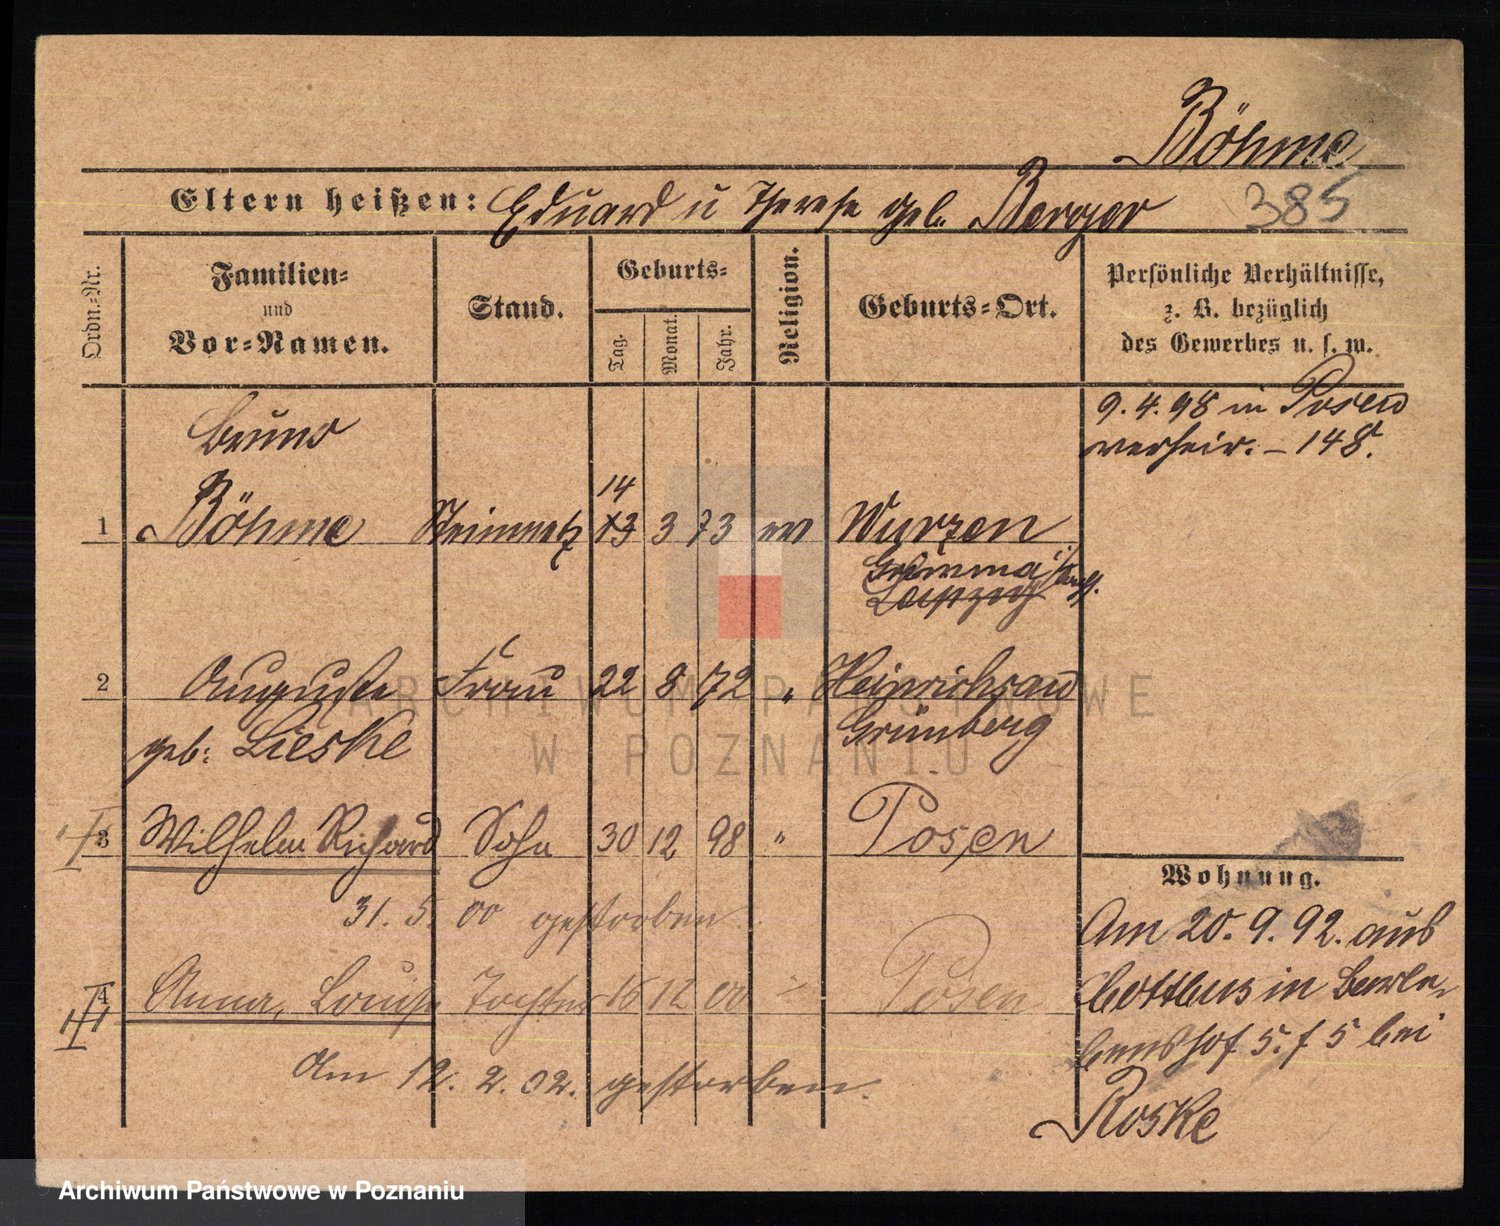 Böhme
Eltern heißen: Eduard u Therese geb. Berger 385
Ordn.-Nr.
Familien-
und
Vor-Namen.
Stand.
Geburts-
Tag.
Monat.
Jahr.
Religion.
Geburts-Ort.
Persönliche Verhältnisse,
z. B. bezüglich
des Gewerbes u. s. w.
9. 4. 98 in Posen
verheir. – 148.
Bruno
14
1 Böhme Steinmetz 13 3 73 ev Wurzen
Grimma
Leipzig
2 Auguste Frau 22 8 72 " Heinrichsau
geb: Lieske Grünberg
3 Wilhelm Richard Sohn 30 12 98 " Posen
31. 5. 00 gestorben
4 Anna, Louise Tochter 16 12 00 Posen
Am 12. 2. 02. gestorben.
Wohnung.
Am 20. 9. 92. aus
Cottbus in Barle-
benshof 5. f 5 bei
Roske
ARCHIWUM PAŃSTWOWE
W POZNANIU
Archiwum Państwowe w Poznaniu